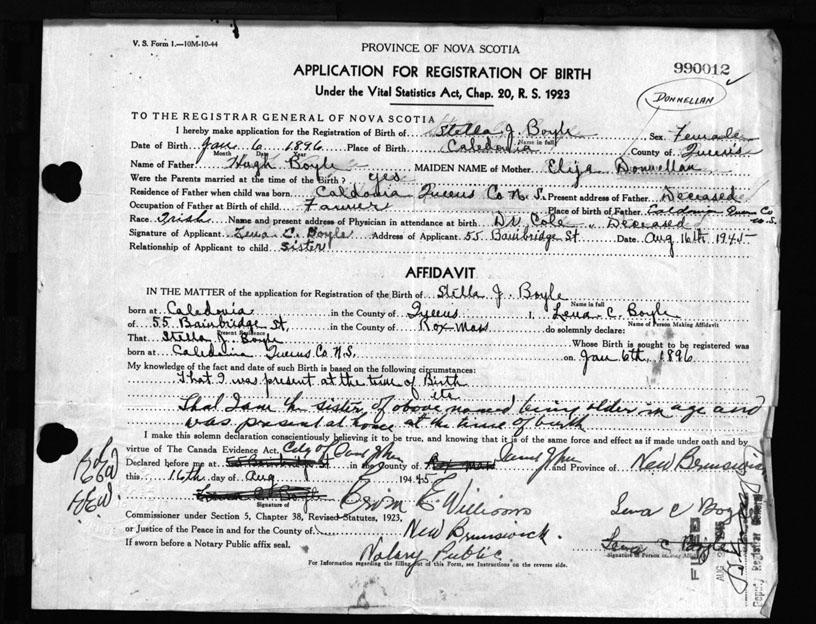 V. S. Form 1.—10M-10-44
PROVINCE OF NOVA SCOTIA
990012
APPLICATION FOR REGISTRATION OF BIRTH
Under the Vital Statistics Act, Chap. 20, R. S. 1923
DONNELLAN
TO THE REGISTRAR GENERAL OF NOVA SCOTIA
I hereby make application for the Registration of Birth of Stella J. Boyle Sex Female
Name in full
Date of Birth Jan 6 1896 Place of Birth Caledonia County of Queens
Month Date Year
Name of Father Hugh Boyle MAIDEN NAME of Mother Eliza Donnellan
Were the Parents married at the time of the Birth? yes
Residence of Father when child was born Caldonia Queens Co N. S. Present address of Father Deceased
Occupation of Father at Birth of child Farmer Place of birth of Father Caldonia Queens Co N.S.
Race Irish Name and present address of Physician in attendance at birth Dr Cole, Deceased
Signature of Applicant Lena C. Boyle Address of Applicant 55 Bainbridge St Date Aug 16th 1945
Relationship of Applicant to child sister
AFFIDAVIT
IN THE MATTER of the application for Registration of the Birth of Stella J. Boyle
Name in full
born at Caledonia in the County of Queens I, Lena C. Boyle
Name of Person Making Affidavit
of 55 Bainbridge St. in the County of Rox Mass do solemnly declare:
Present Residence
That Stella J. Boyle Whose Birth is sought to be registered was
born at Caledonia Queens Co N.S. on Jan 6th, 1896
My knowledge of the fact and date of such Birth is based on the following circumstances:
That I was present at the time of Birth
etc
That I am the sister, of above named being older in age and
was present at home at the time of birth
I make this solemn declaration conscientiously believing it to be true, and knowing that it is of the same force and effect as if made under oath and by
virtue of The Canada Evidence Act. City of Saint John
Declared before me at 55 Bainbridge St in the County of Rox Mass Saint John and Province of New Brunswick
this 16th day of Aug 1945
Lena C Boyle
Signature of
E Williams
Lena C Boyle
Commissioner under Section 5, Chapter 38, Revised Statutes, 1923,
or Justice of the Peace in and for the County of New Brunswick.
Lena C Boyle
Signature of Person Making Affidavit
If sworn before a Notary Public affix seal.
Notary Public
For Information regarding the filling out of this Form, see Instructions on the reverse side.
FILED
AUG 1945
Deputy Registrar General